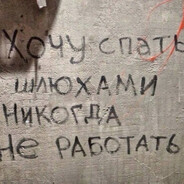 Хочу спать
шлюхами
никогда
не работать